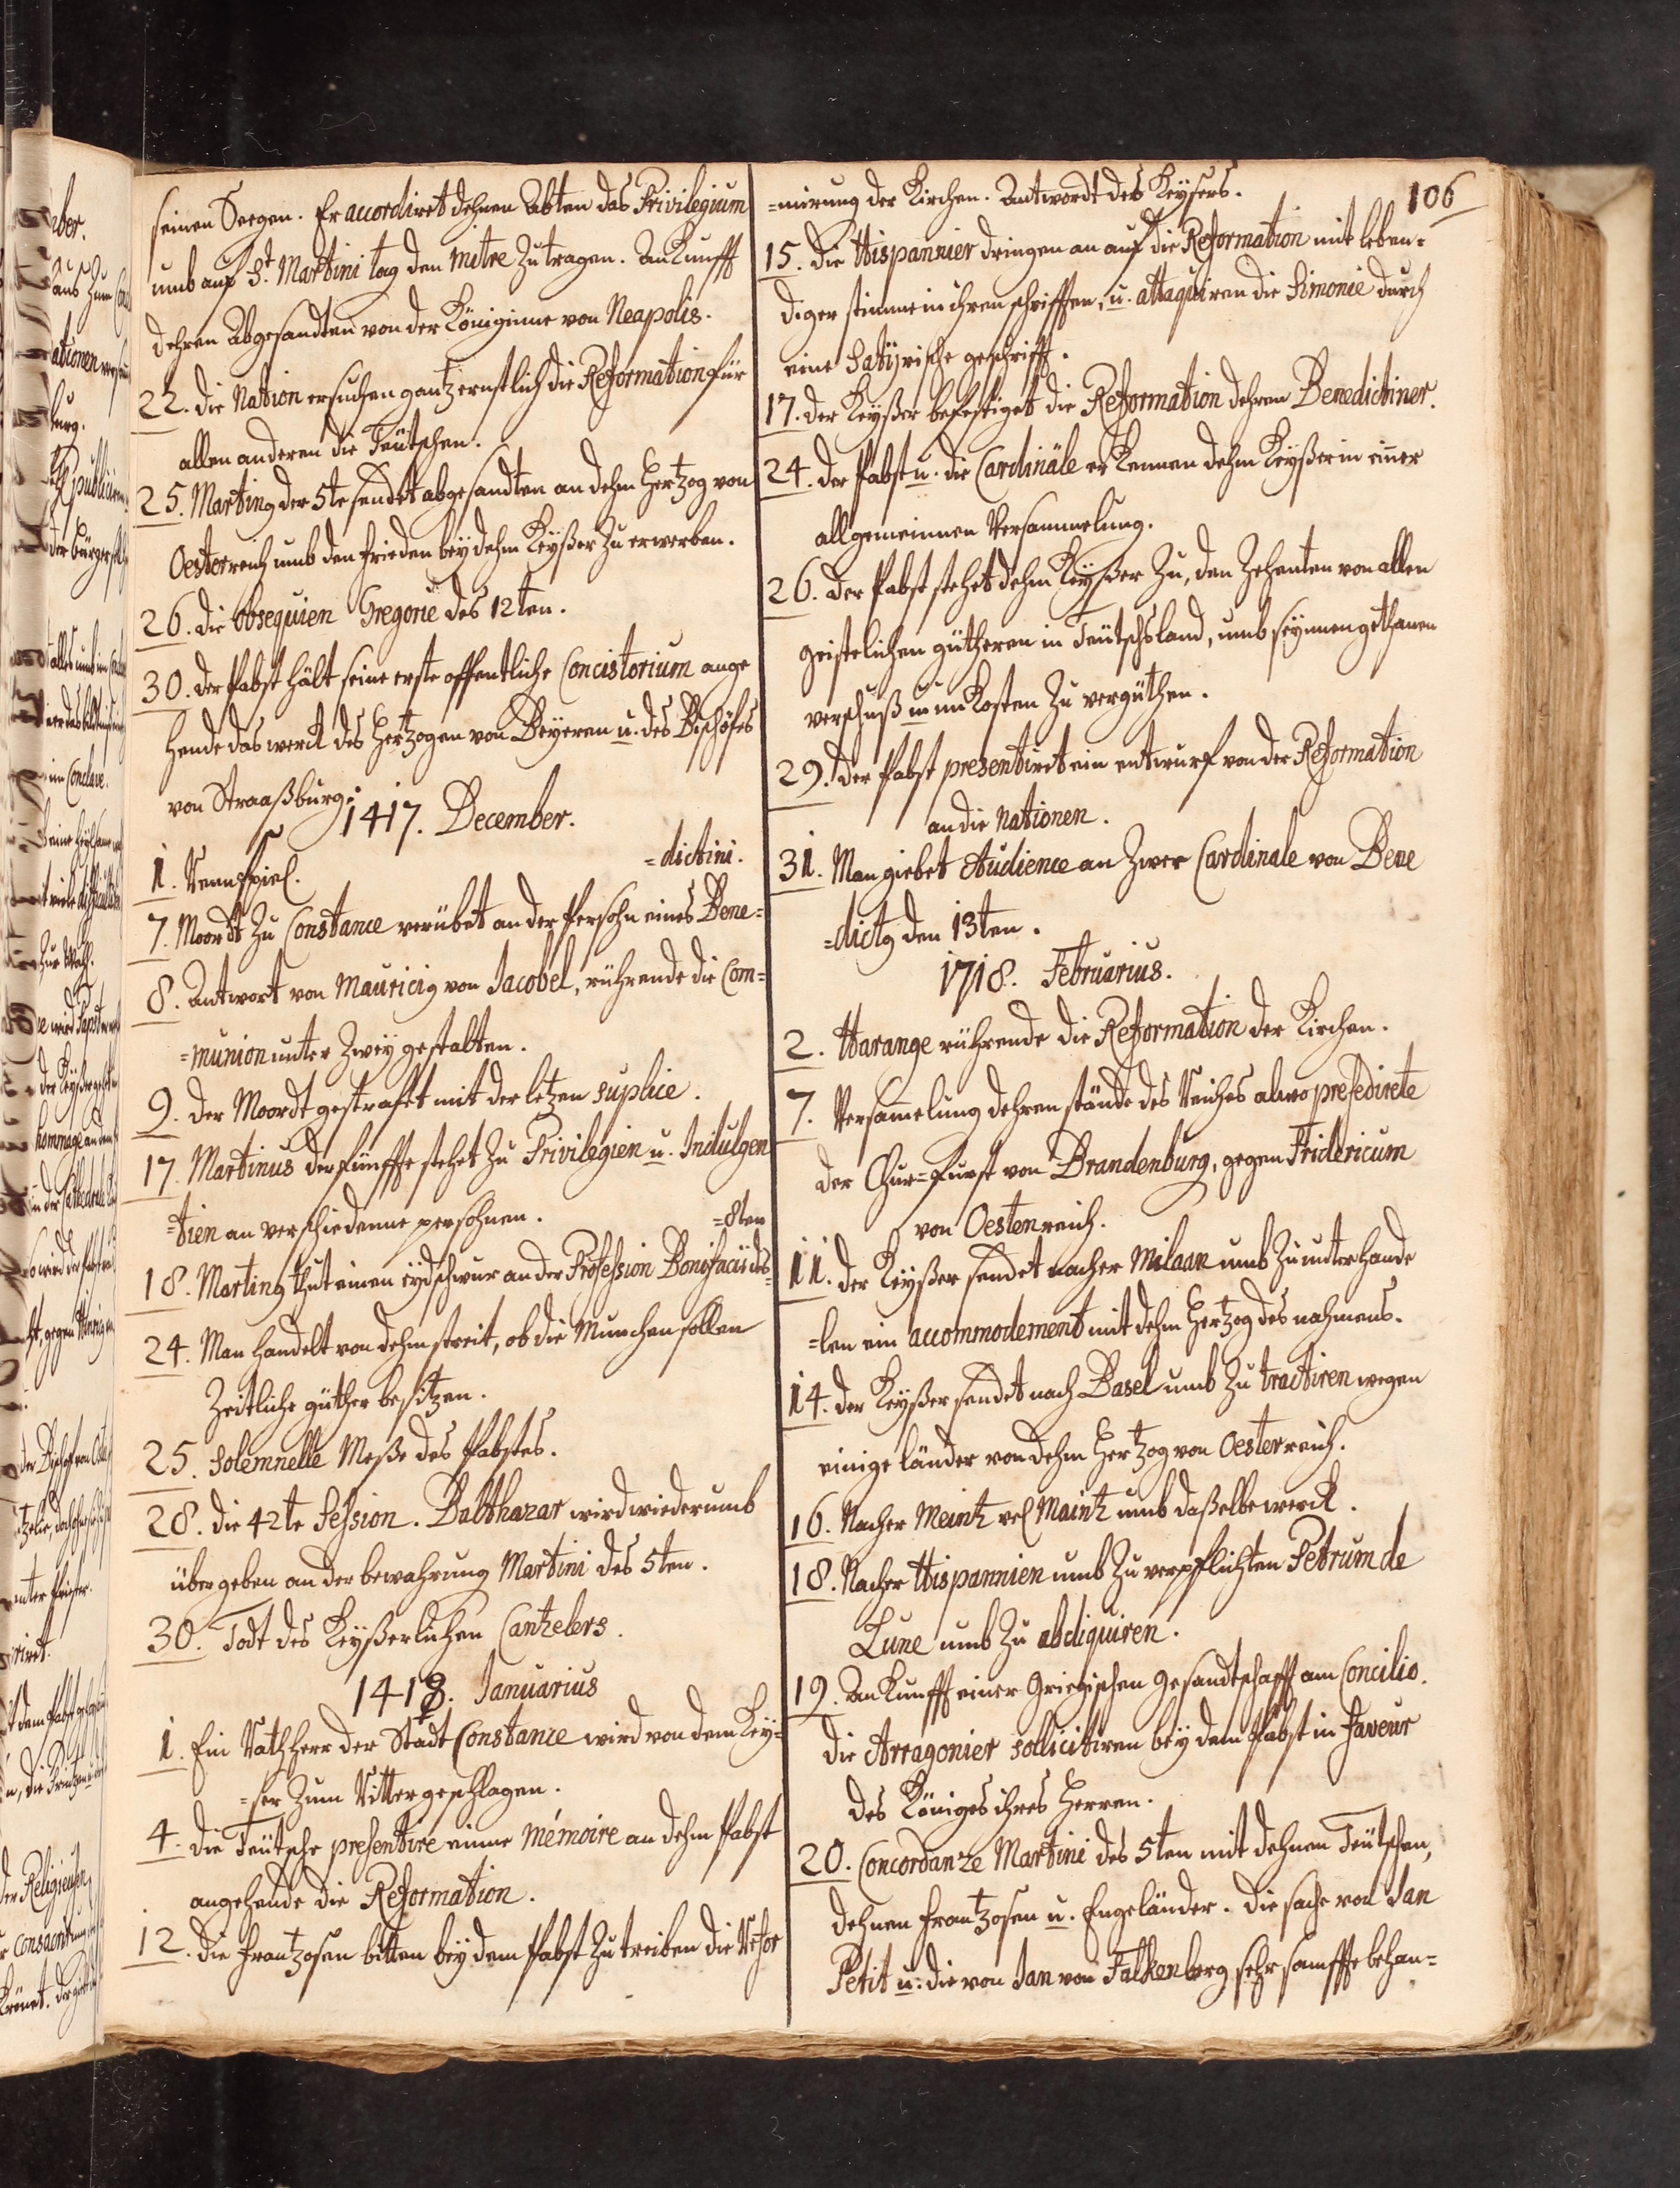 seinen Seegen. Er accordiret dehnen Abten das Privilegium
umb auf St. Martini tag den mitre Zu tragen. Ankunfft
dehren Abgesandten von der Königinne von Neapolis.
22. die Nation ersuchen gantz ernstlich die Reformation für
allen anderen die Teütschen.
25. Martinus der 5te sendet abgesandten an dehm Hertzog von
Oesterreich umb den frieden bey dehm Keyßer Zu erwerben.
26. die obsequien Gregorie des 12ten.
30. der Pabst hält seine erste offentliche Concistorium ange
hende das werck des Hertzogen von Beyeren u. des Bischofes
von Straaßburg.
1417. December.
1. Rennspiel.
=dictini.
7. Moordt Zu Constance verübet an der Persohn eines Bene=
8. Antwort von Mauricius von Jacobel, rührende die Com=
=munion unter Zwey gestalten.
9. der Moordt gestrafet mit der letzen suplice.
17. Martinus der fünffte stehet Zu Privilegien u. Indulgen
=tien an verschiedenne persohnen.
=8ten
18. Martinus thut einen eydschwur an der Profession Bonifacii des=
24. Man handelt von dehm streit, ob die Munchen sollen
Zeitliche güther besitzen.
25. Solemnelle Meße des Pabstes.
28. die 42te Session. Balthazar wird wiederumb
übergeben an der bewahrung Martini des 5ten.
30. Todt des Keyßerlichen Cantzelers.
1418. Januarius
1. Ein Rathherr der Stadt Constance wird von dem Key=
=ser Zum Ritter geschlagen.
4. die Teütsche presentire einne mémoire an dehm Pabst
angehende die Reformation.
12. die Frantzosen bitten bey dem Pabst Zu treiben die Refor
106
=mirung der Kirchen. Antwordt des Keysers.
15. die Hispannier dringen an auf die Reformation mit leben=
diger stimme in ihren schrifften, u. attaquiren die Simonie durch
eine Satÿrische geschrifft.
17. der Keyßer befestiget die Reformation dehren Benedictiner.
24. der Pabst u. die Cardinäle erkennen dehm Keyßer in einer
allgemeinnen Versammelung.
26. der Pabst stehet dehm Keyßer Zu, den Zehenten von allen
geistelichen gütheren in Teütschland, umb seynnen gethanen
verschuß u. unkosten Zu vergüthen.
29. der Pabst presentiret ein entwurf von der Reformation
an die Nationen.
31. Man giebet Audience an Zwer Cardinale von Bene
=dictus den 13ten.
1718. Februarius.
2. Harange rührende die Reformation der Kirchen.
7. Versamelung dehren stände des Reiches alwo presedirete
der Chur=Furst von Brandenburg, gegen Fridericum
von Oestenreich.
11. der Keyßer sendet nacher Milaan umb Zu unterhande
=len ein accommodement mit dehm Hertzog des nahmens.
14. der Keyßer sendet nach Basel umb Zu tractiren wegen
einige länder von dehm Hertzog von Oesterreich.
16. Nacher Meintz vel Maintz umb daßelbe werck.
18. Nacher Hispannien umb Zu verpflichten Petrum de
Lune umb Zu abdiquiren.
19. Ankunfft einer Griegischen Gesandtschafft am Concilio.
die Arragonier sollicitiren bey dem Pabst in faveur
des Königes ihres Herren.
20. Concordanze Martini des 5ten mit dehnen Teütschen,
dehnen Frantzosen u. Engeländer. Die sache von Jan
Petit u. die von Jan von Falkenberg sehr samffte behan=